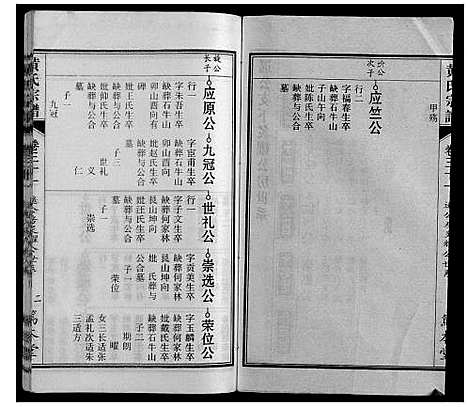 黄氏宗譜
卷三十一
应竺公
次子
行二
字福春生卒
缺葬石牛山
子山午向
妣陈氏生卒
缺葬与公合
墓
甲殇
长子
应原公
字朱吾生卒
缺葬石牛山
卯山酉向有
碑
妣王氏生卒
缺葬与公合
妣仰氏生卒
缺葬与公合
墓
子一
九冠
九冠公
字宸甫生卒
缺葬石牛山
卯山酉向
妣赵氏生卒
缺葬与公合
墓
子三
世礼
义
仁
世礼公
字子文生卒
缺葬何家林
艮山坤向
妣汪氏生卒
缺葬与公合
墓
子一
崇选
崇选公
字贡美生卒
缺葬何家林
艮山坤向
妣 氏生卒
缺葬与夫
公合墓
子一
荣位
荣位公
字玉麟生卒
缺葬何家林
艮山坤向
妣戴氏生卒
缺葬石牛山
子二
期朗
曜
女三长适张
孟礼次适朱
三适方
黄氏宗譜
卷三十一
二